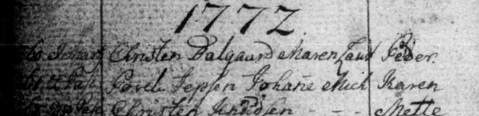 1772
Christen Dalgaard Maren Laud Peder.
Povel Jepsen Johane Mich Karen
Christen Knudsen - - - Mette